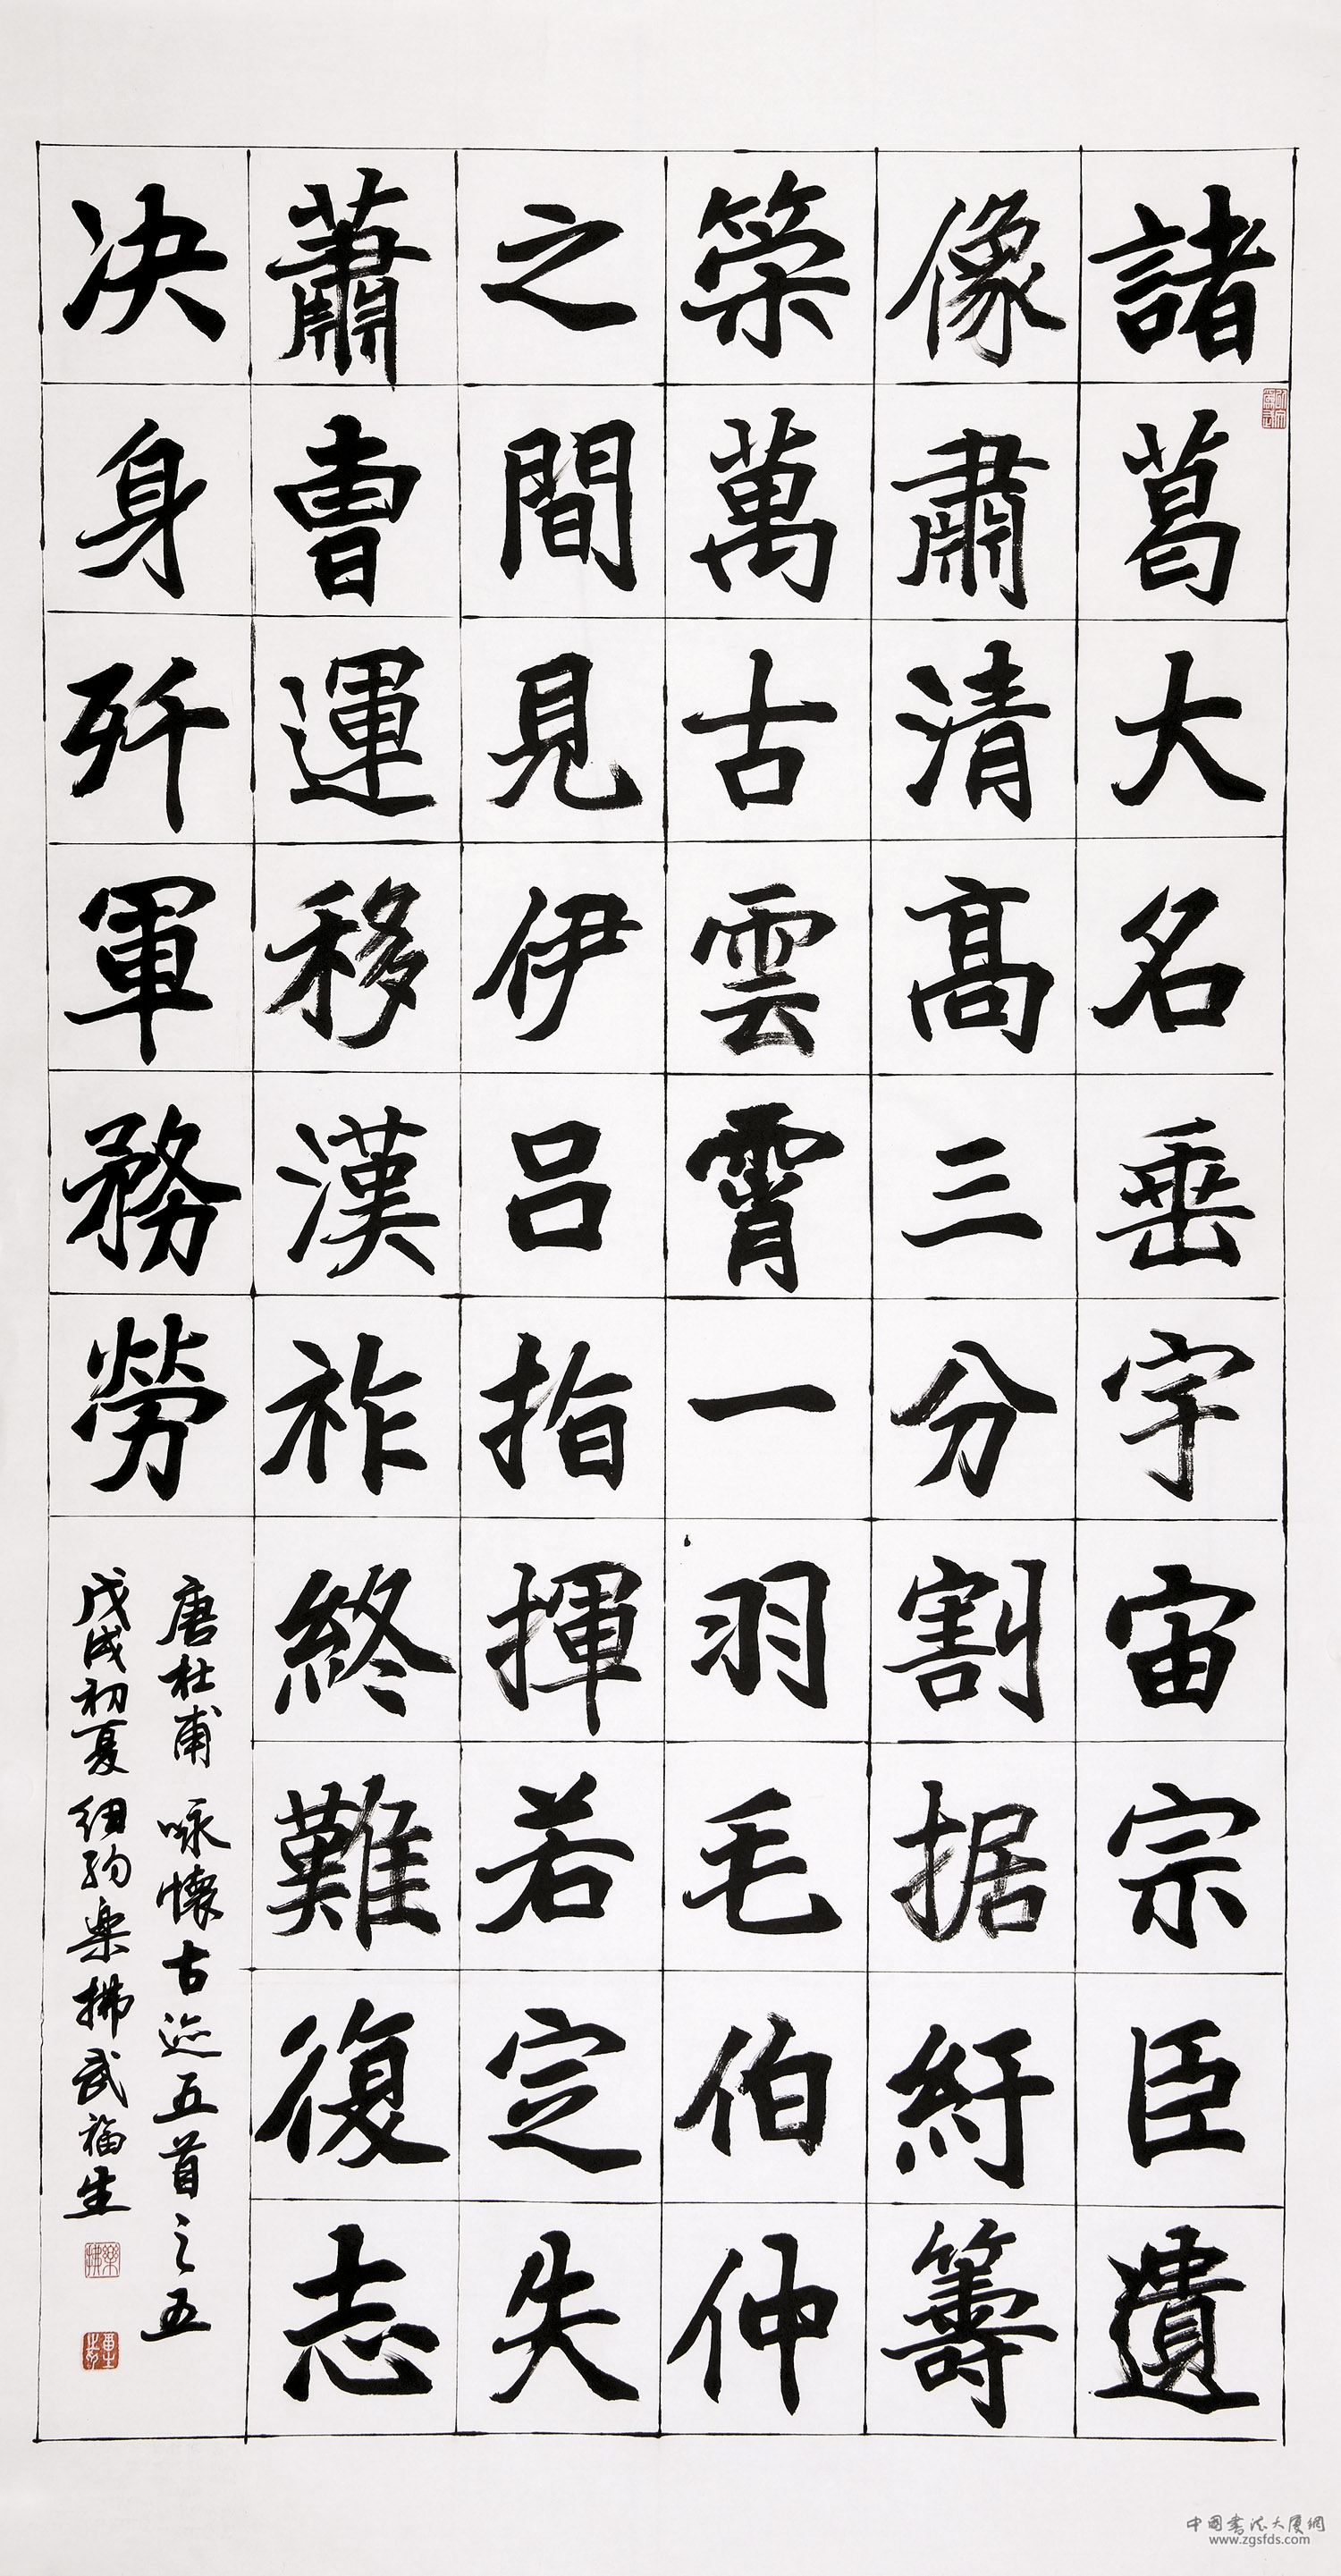 諸葛大名垂宇宙宗臣遺
像肅清高三分割据紆籌
策萬古雲霄一羽毛伯仲
之間見伊呂指揮若定失
蕭曹運移漢祚終難復志
决身歼軍務勞
唐杜甫咏懷古迹五首之五
戊戌初夏纽約楽拂武福生
中国書法大厦網
www.zgsfds.com